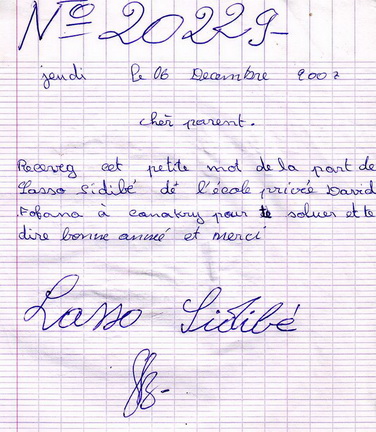 N° 20229-
jeudi le 06 Decembre 2007
cher parent.
Receveg cet petite mot de la part de
Lasso Sidibé de l'école privée David
Fofana à conakry pour te saluer et te
dire bonne année et merci
Lasso Sidibé